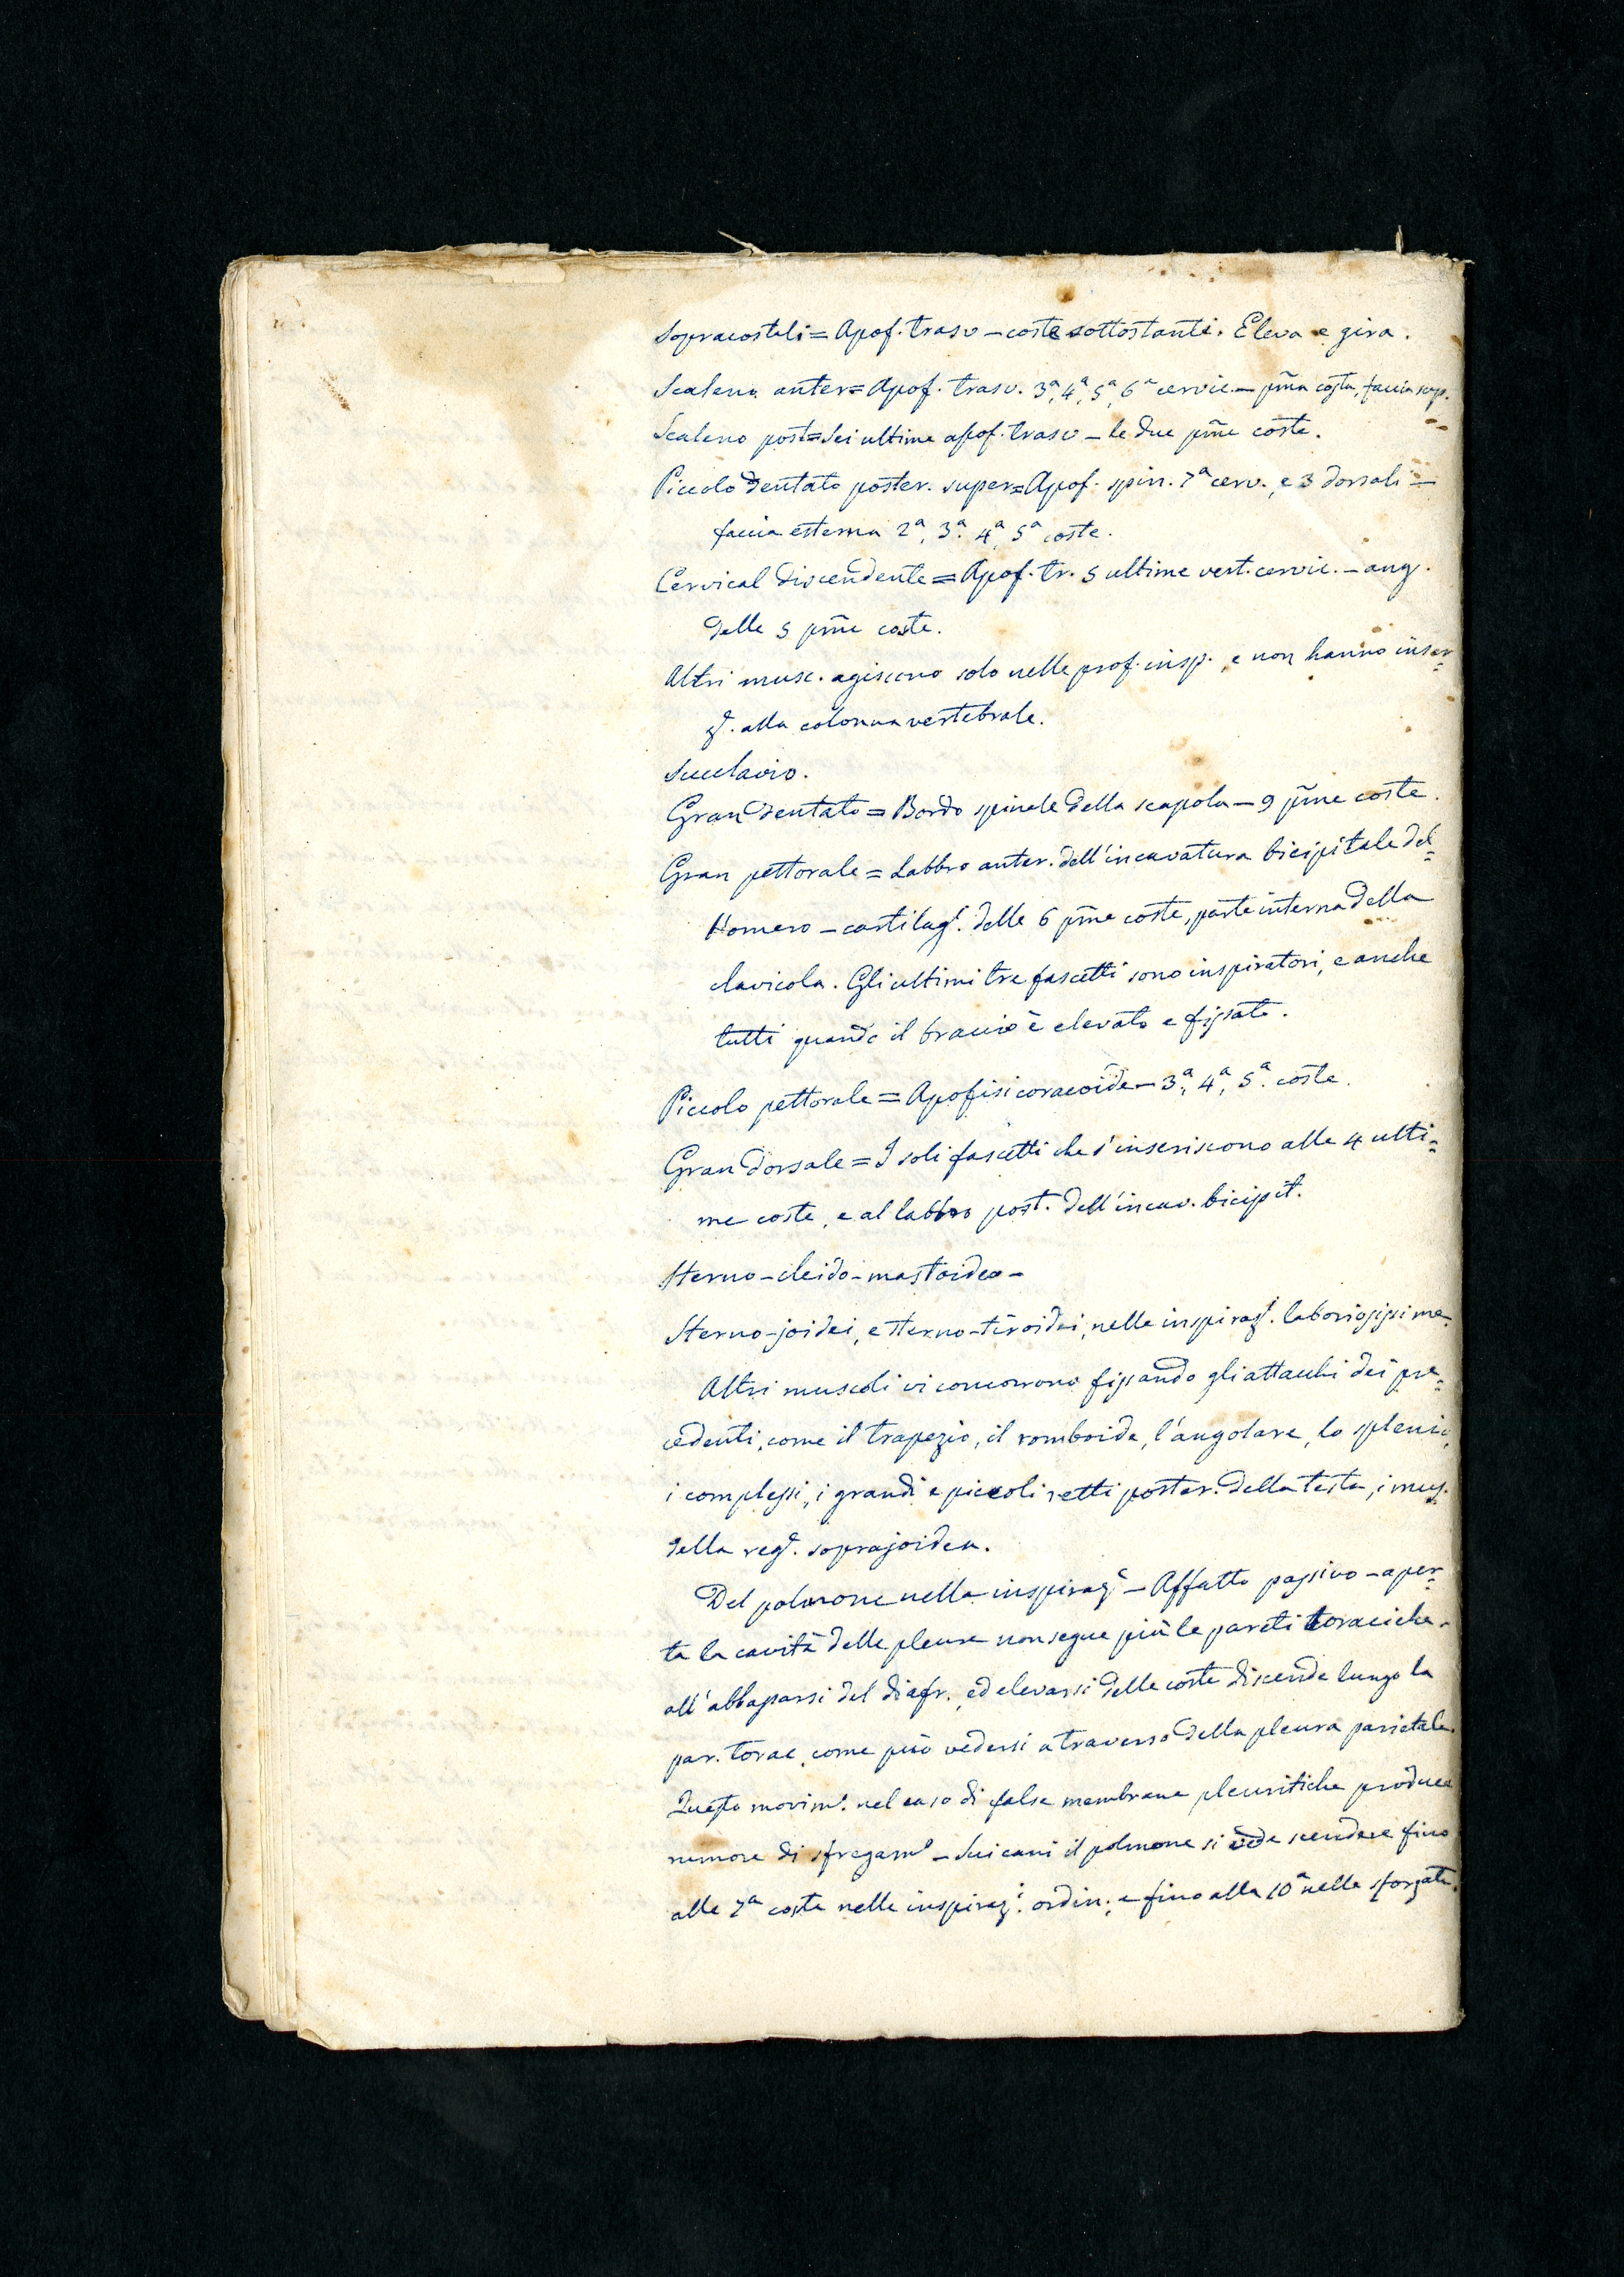 Sopracostali = Apof. trasv – coste sottostanti. Eleva e gira.
Scaleno anter = Apof. trasv. 3ª, 4ª, 5ª, 6ª cervic. – pm̃a costa, faccia sup.
Scaleno post = Sei ultime apof. trasv – le due pm̃e coste.
Piccolo dentato poster. super = Apof. spin. 7ª cerv., e 3 dorsali –
faccia esterna 2ª, 3ª, 4ª, 5ª coste.
Cervical discendente = Apof. tr. 5 ultime vert. cervic. – ang.
delle 5 pm̃e coste.
Altri musc. agiscono solo nelle prof. insp., e non hanno inser=
zⁱ. alla colonna vertebrale.
Succlavio.
Gran dentato = Bordo spinale della scapola – 9 pm̃e coste.
Gran pettorale = Labbro anter. dell'incavatura bicipitale del=
l'omero – cartilagⁱ. delle 6 pm̃e coste, parte interna della
clavicola. Gli ultimi tre fascetti sono inspiratori, e anche
tutti quando il braccio è elevato e fissato.
Piccolo pettorale = Apofisi coracoide – 3ª, 4ª, 5ª. coste.
Gran dorsale = I soli fascetti che s'inseriscono alle 4 ulti=
me coste, e al labbro post. dell'incav. bicipit.
Sterno-cleido-mastoideo –
Sterno-joidei, e sterno-tiroidei, nelle inspirazⁱ. laboriosissime.
Altri muscoli vi concorrono fissando gli attacchi dei pre=
cedenti, come il trapezio, il romboide, l'angolare, lo splenio,
i complessi, i grandi e piccoli retti poster. della testa, i mus.
della regᵉ. soprajoidea.
Del polmone nella inspirazᵉ – Affatto passivo – aper=
ta la cavità delle pleure non segue più le pareti toraciche.
all'abbassarsi del diafr., ed elevarsi delle coste discende lungo la
par. torac. come può vedersi a traverso della pleura parietale.
Questo movimᵗ. nel caso di false membrane pleuritiche produce
rumore di sfregamᵗ – Sui cani il polmone si vede scendere fino
alle 7ª coste nelle inspirazⁱ. ordin., e fino alla 10ª nelle sforzate.